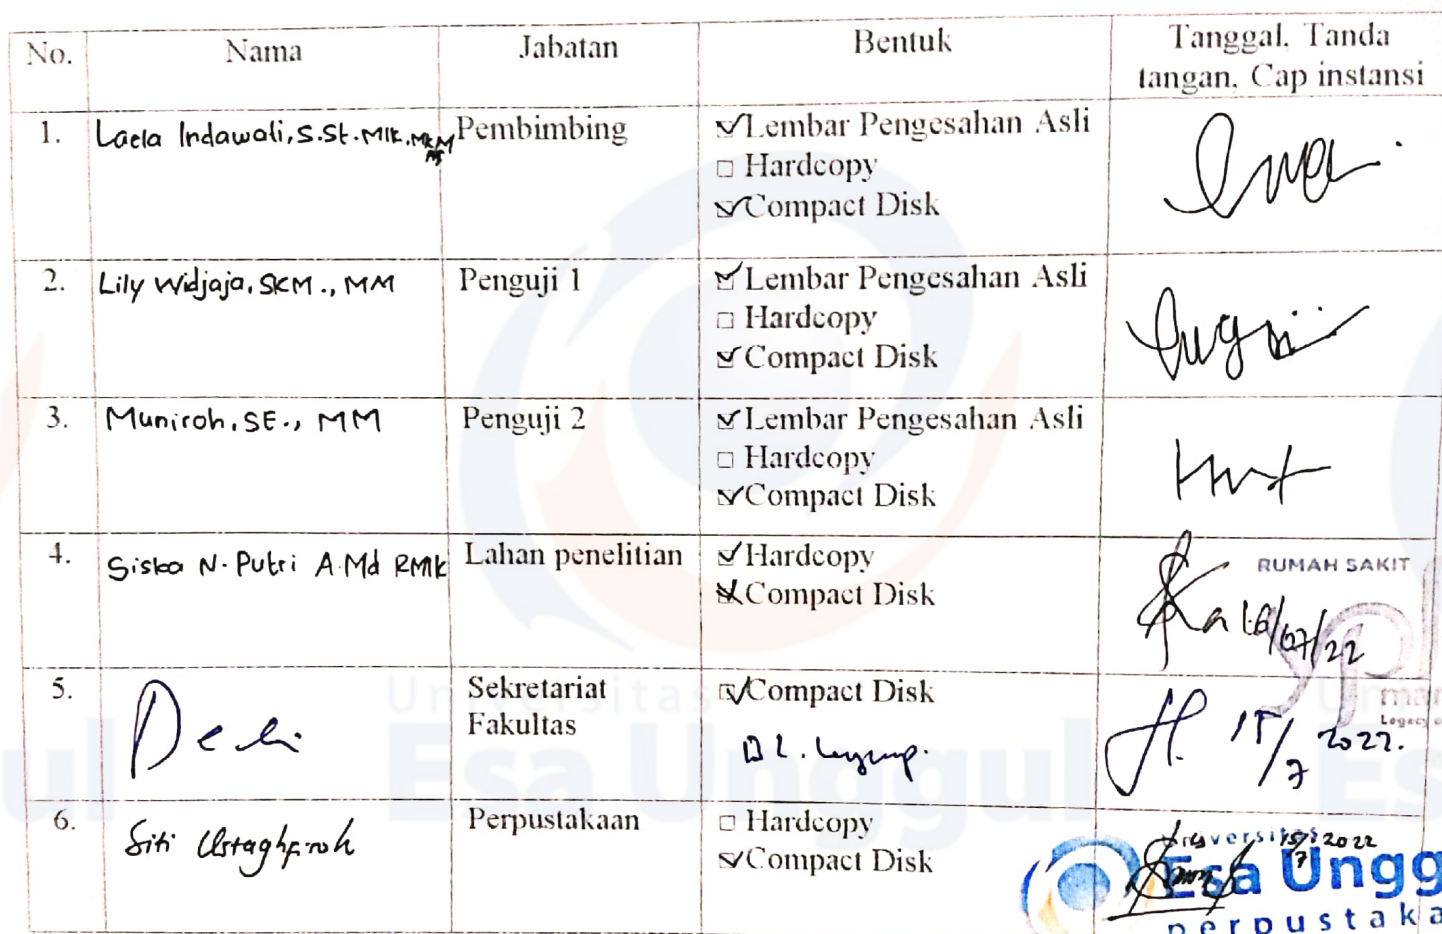 No. Nama Jabatan Bentuk Tanggal, Tanda
tangan, Cap instansi
1. Laela Indawati, S.St.MIK, MKM Pembimbing Lembar Pengesahan Asli
Hardcopy
Compact Disk
2. Lily Widjaja, SKM., MM Penguji 1 Lembar Pengesahan Asli
Hardcopy
Compact Disk
3. Muniroh, SE., MM Penguji 2 Lembar Pengesahan Asli
Hardcopy
Compact Disk
4. Siska N. Putri A.Md RMIK Lahan penelitian Hardcopy
Compact Disk
RUMAH SAKIT
/07/22
5. Sekretariat
Fakultas
Compact Disk
15/7 2022.
Legacy o
Universitas
Esa Unggul
6. Siti Perpustakaan Hardcopy
Compact Disk
15/7 2022
Universitas
Esa Ungg
perpustaka